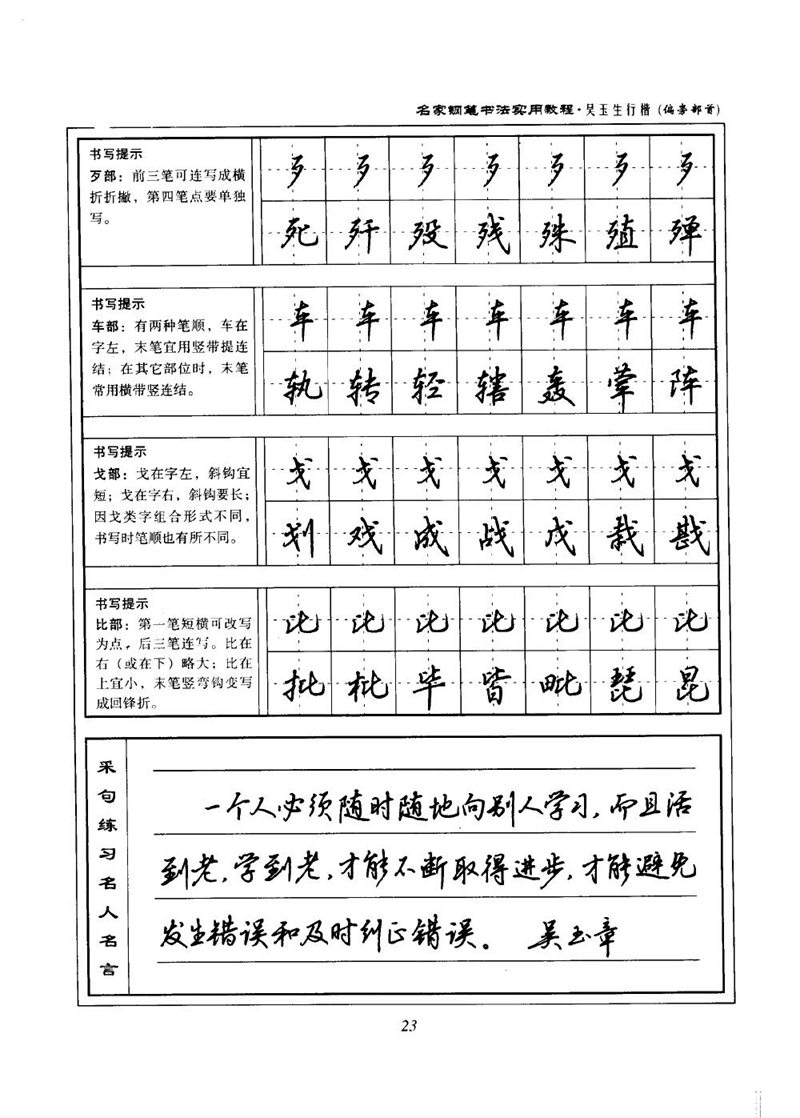 名家钢笔书法实用教程·吴玉生行楷（偏旁部首）
书写提示
歹部：前三笔可连写成横
折折撇，第四笔点要单独
写。
歹 歹 歹 歹 歹 歹 歹
死 歼 殁 残 殊 殖 殚
书写提示
车部：有两种笔顺，车在
字左，末笔宜用竖带提连
结；在其它部位时，末笔
常用横带竖连结。
车 车 车 车 车 车 车
轨 转 轻 辖 轰 荤 阵
书写提示
戈部：戈在字左，斜钩宜
短；戈在字右，斜钩要长；
因戈类字组合形式不同，
书写时笔顺也有所不同。
戈 戈 戈 戈 戈 戈 戈
划 戏 成 战 戊 裁 戡
书写提示
比部：第一笔短横可改写
为点，后三笔连写。比在
右（或在下）略大；比在
上宜小，末笔竖弯钩变写
成回锋折。
比 比 比 比 比 比 比
批 枇 毕 皆 毗 琵 昆
采句练习名人名言
一个人必须随时随地向别人学习，而且活
到老，学到老，才能不断取得进步，才能避免
发生错误和及时纠正错误。 吴玉章
23